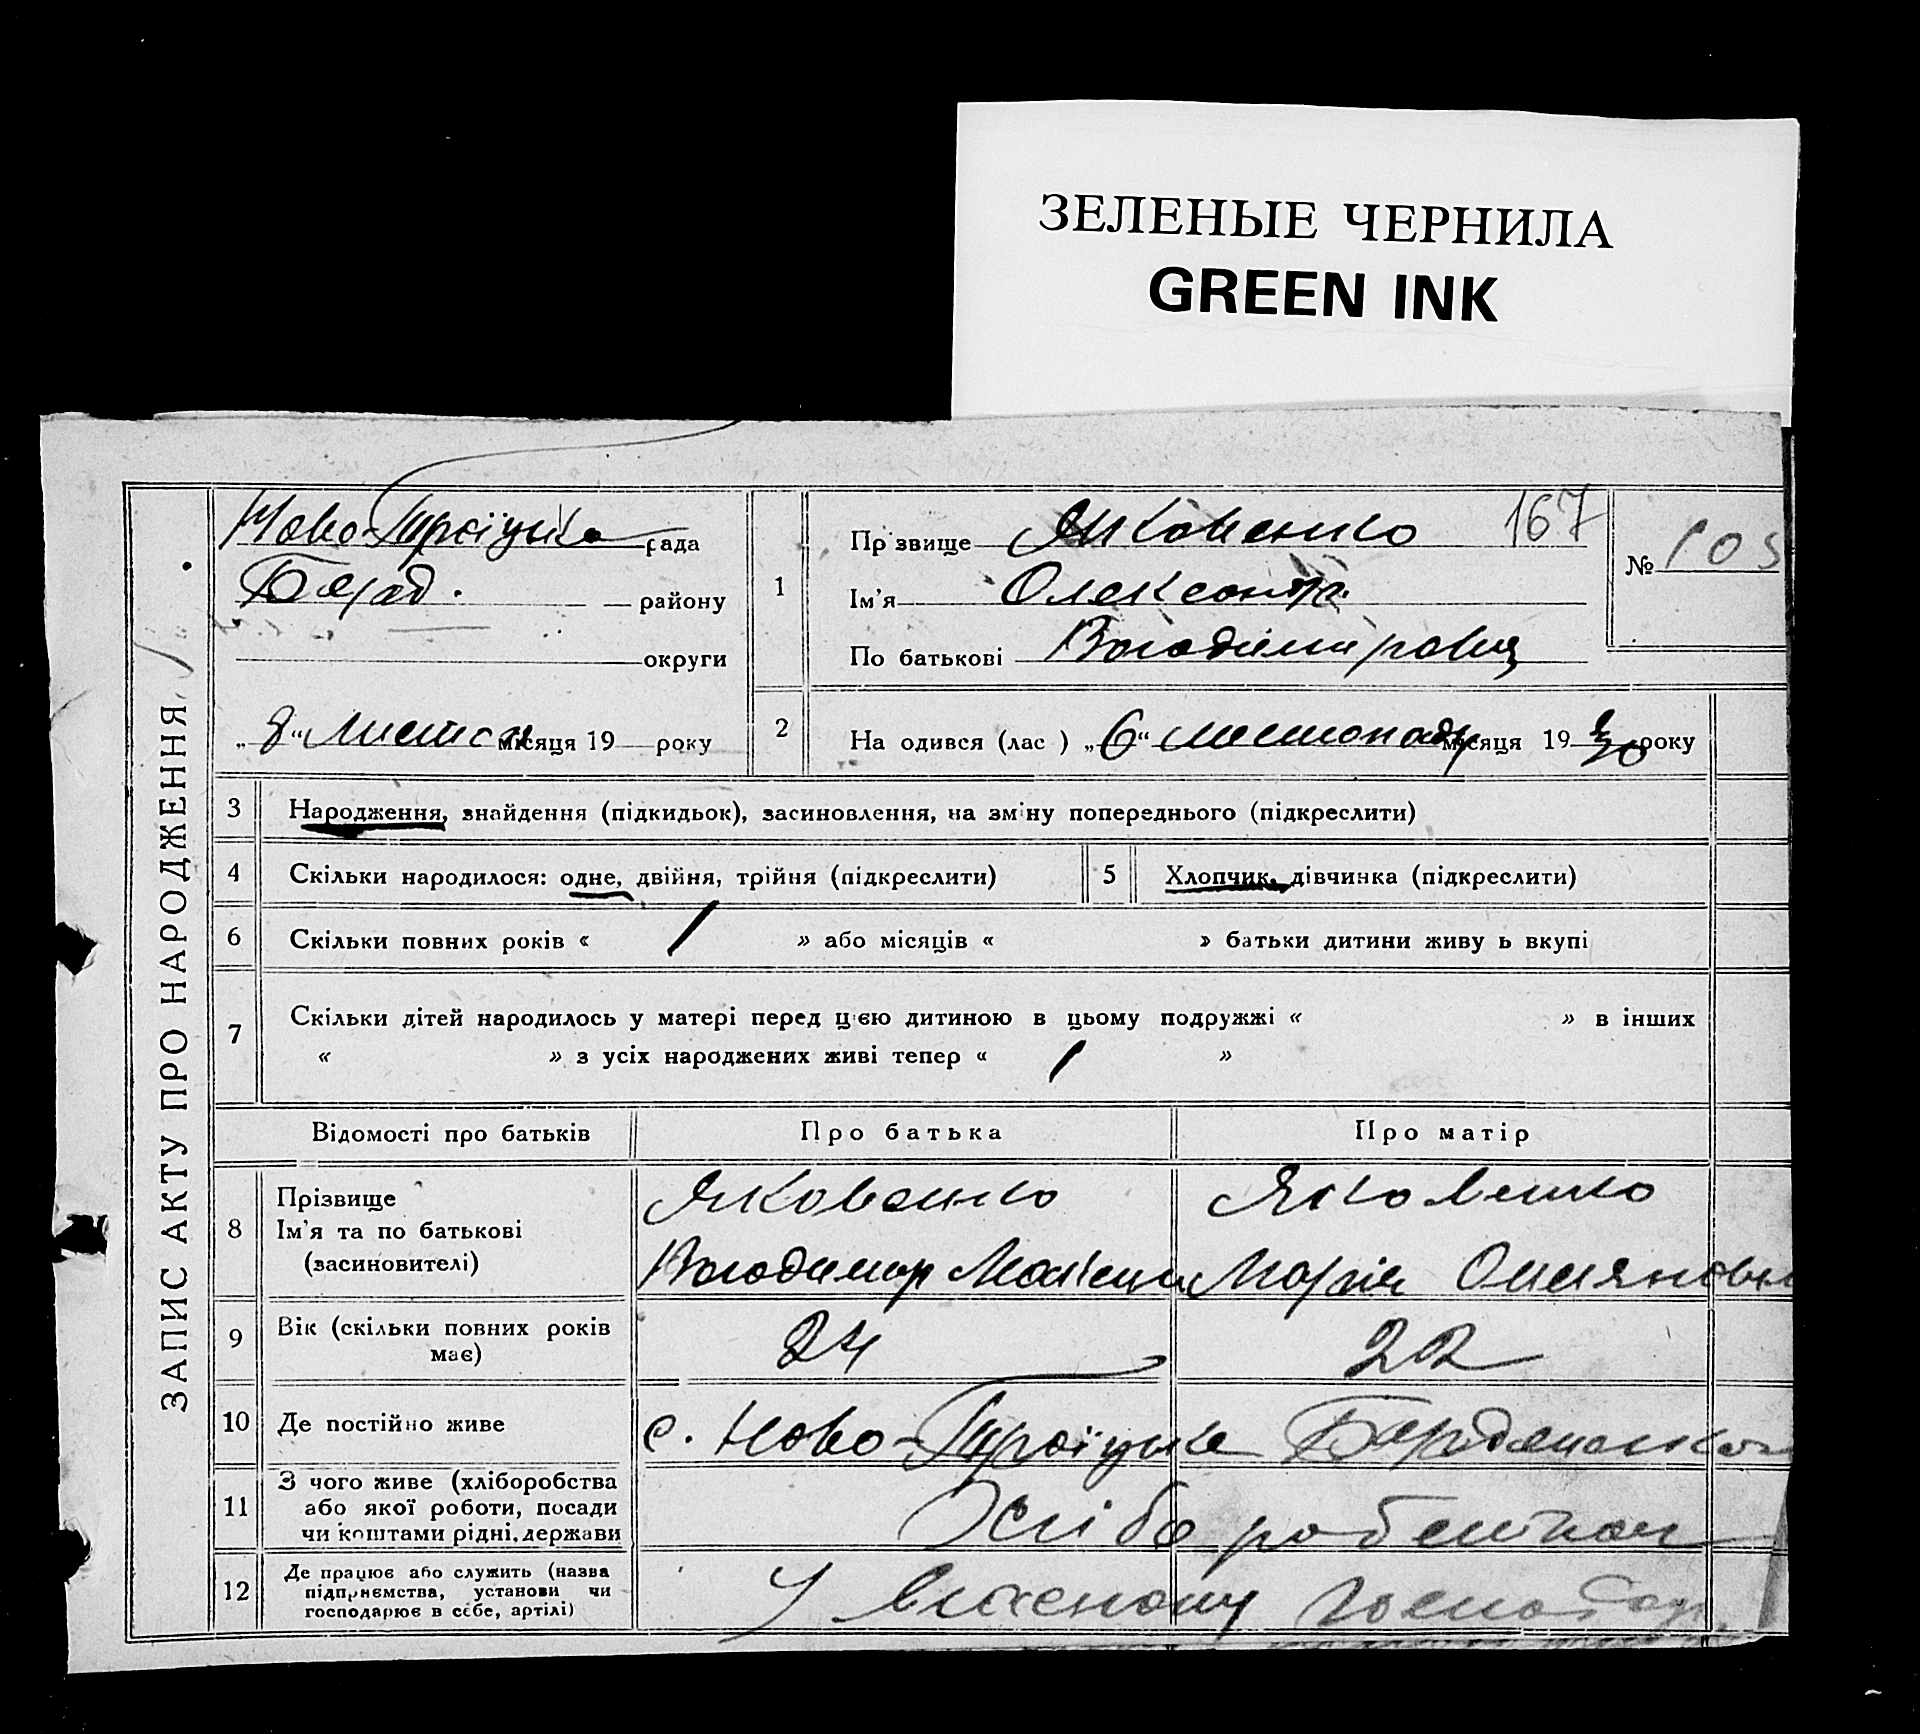 ЗЕЛЕНЫЕ ЧЕРНИЛА
GREEN INK
ЗАПИС АКТУ ПРО НАРОДЖЕННЯ
Ново-Троїцька рада
району
округи
„8“ Листоп місяця 19 року
1
Пр звище Яковенко 167
Ім'я
По батькові
№ 105
2
На одився (лас ) „6“ листопаду місяця 19 30 року
3 Народження, знайдення (підкидьок), засиновлення, на зм ну попереднього (підкреслити)
4 Скільки народилося: одне, двійня, трійня (підкреслити)
5 Хлопчик, дівчинка (підкреслити)
6 Скільки повних років « / » або місяців « » батьки дитини живу ь вкупі
7 Скільки дітей народилось у матері перед цією дитиною в цьому подружжі « » в інших
« » з усіх народжених живі тепер « / »
Відомості про батьків Про батька Про матір
8 Прізвище
Ім'я та по батькові
(засиновителі)
Яковенко Яковенко
Володимир Марія
9 Вік (скільки повних років
має)
24 22
10 Де постійно живе с. Ново-Троїцьке
11 З чого живе (хліборобства
або якої роботи, посади
чи коштами рідні, держави
12 Де працює або служить (назва
підприємства, установи чи
господарює в себе, артілі)
У власному господар